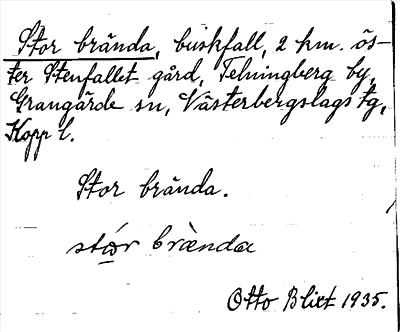 Stor brända, buskfall, 2 km. ös-
ter Stenfallet gård, Telningberg by,
Grangärde sn, Västerbergslags tg,
Kopp l.
Stor brända.
brä̀nda
Otto Blixt 1935.